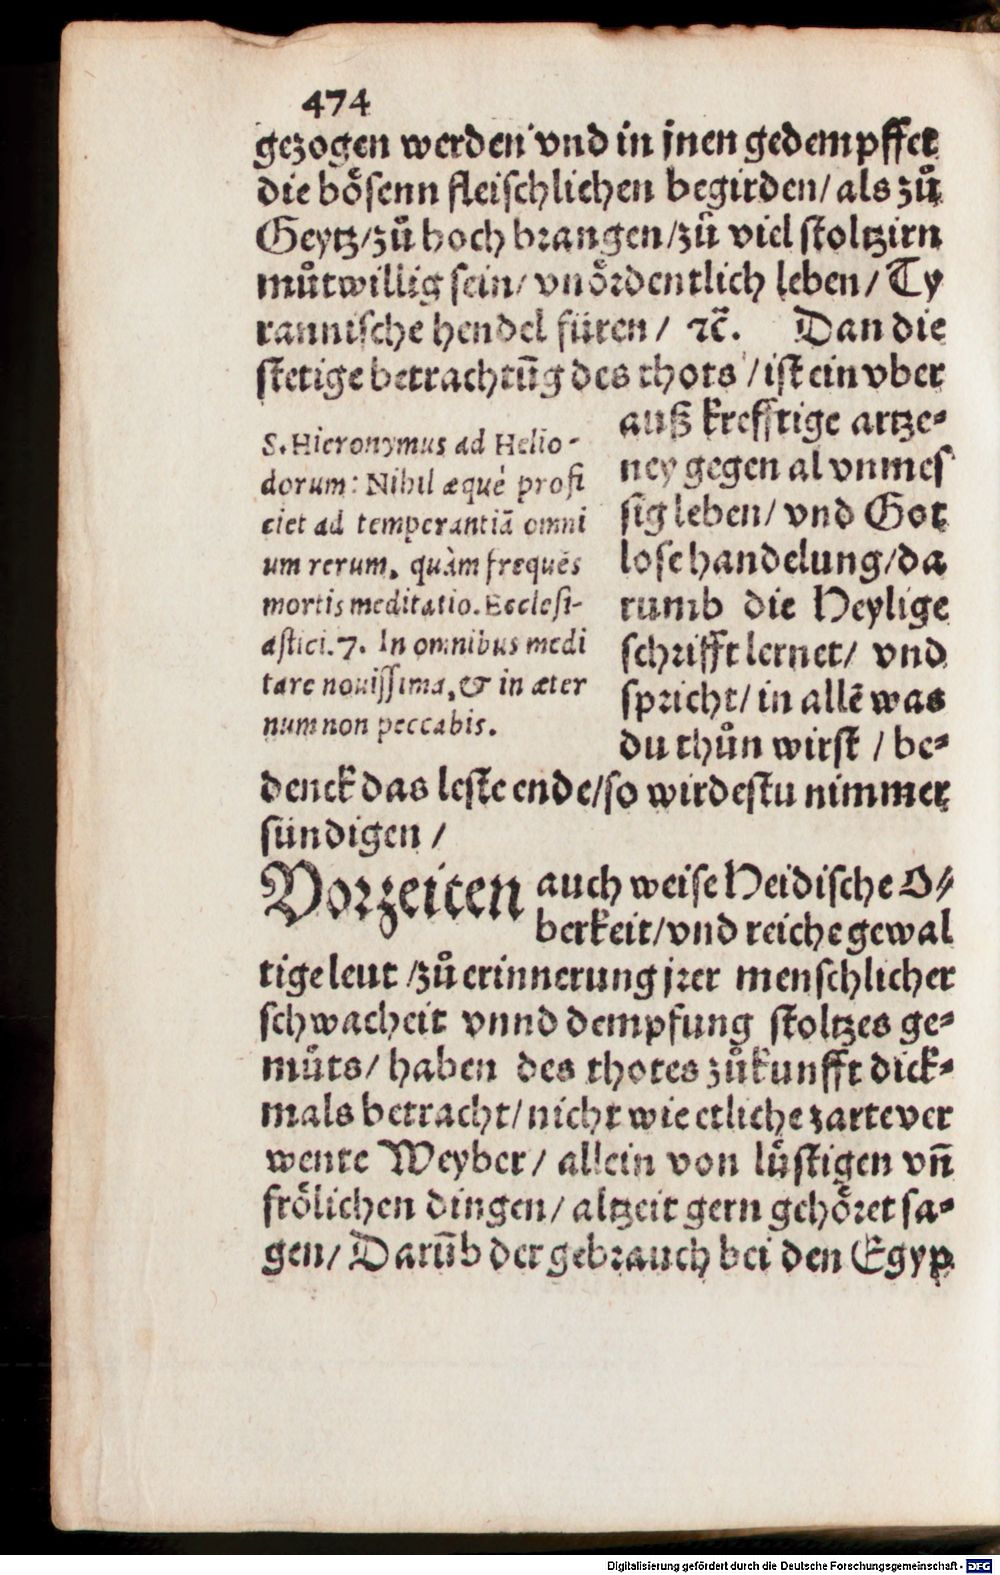 474
gezogen werden vnd in jnen gedempffet
die boͤsenn fleischlichen begirden/ als zuͦ
Geytz/zuͦ hoch brangen/zuͦ viel stoltzirn
muͦtwillig sein/ vnoͤrdentlich leben/ Ty
rannische hendel füren/ ꝛc̃. Dan die
stetige betrachtũg des thots /ist ein vber
auß krefftige artze⸗
ney gegen al vnmes
sig leben/ vnd Got
lose handelung/da
rumb die Heylige
schrifft lernet/ vnd
spricht/ in allẽ was
du thuͦn wirst / be⸗
S. Hieronymus ad Helio-
dorum: Nihil æquè profi
ciet ad temperantiã omni
um rerum, quàm frequẽs
mortis meditatio. Ecclesi-
astici. 7. In omnibus medi
tare nouissima, & in æter
num non peccabis.
denck das leste ende/so wirdestu nimmer
sündigen /
Vorzeiten auch weise Heidische O⸗
berkeit/vnd reiche gewal
tige leut /zuͦ erinnerung jrer menschlicher
schwacheit vnnd dempfung stoltzes ge⸗
muͤts/ haben des thotes zuͦkunfft dick⸗
mals betracht/nicht wie etliche zarte ver
wente Weyber/ allein von luͤstigen vñ
froͤlichen dingen/ altzeit gern gehoͤret sa⸗
gen/ Darũb der gebrauch bei den Egyp
Digitalisierung gefördert durch die Deutsche Forschungsgemeinschaft - DFG